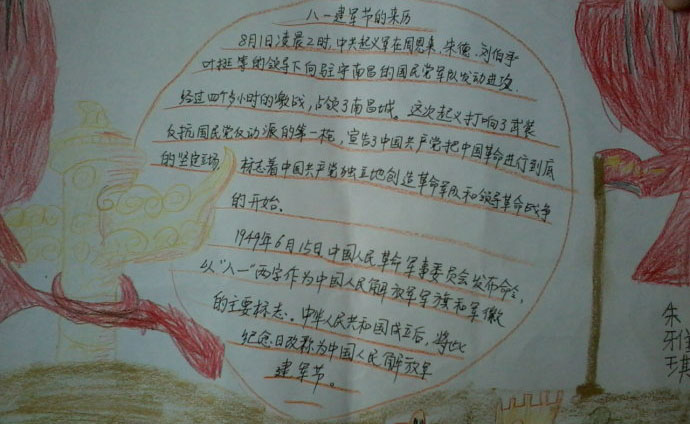 八一建军节的来历
8月1日凌晨2时,中共起义军在周恩来、朱德、刘伯承
叶挺等的领导下向驻守南昌的国民党军队发动进攻.
经过四个多小时的激战,占领了南昌城。这次起义打响了武装
反抗国民党反动派的第一枪,宣告了中国共产党把中国革命进行到底
的坚定立场,标志着中国共产党独立地创造革命军队和领导革命战争
的开始.
1949年6月15日中国人民革命军事委员会发布命令,
以“八一”两字作为中国人民解放军军旗和军徽
的主要标志。中华人民共和国成立后,将此
纪念日改称为中国人民解放军
建军节。
朱
雅
琪